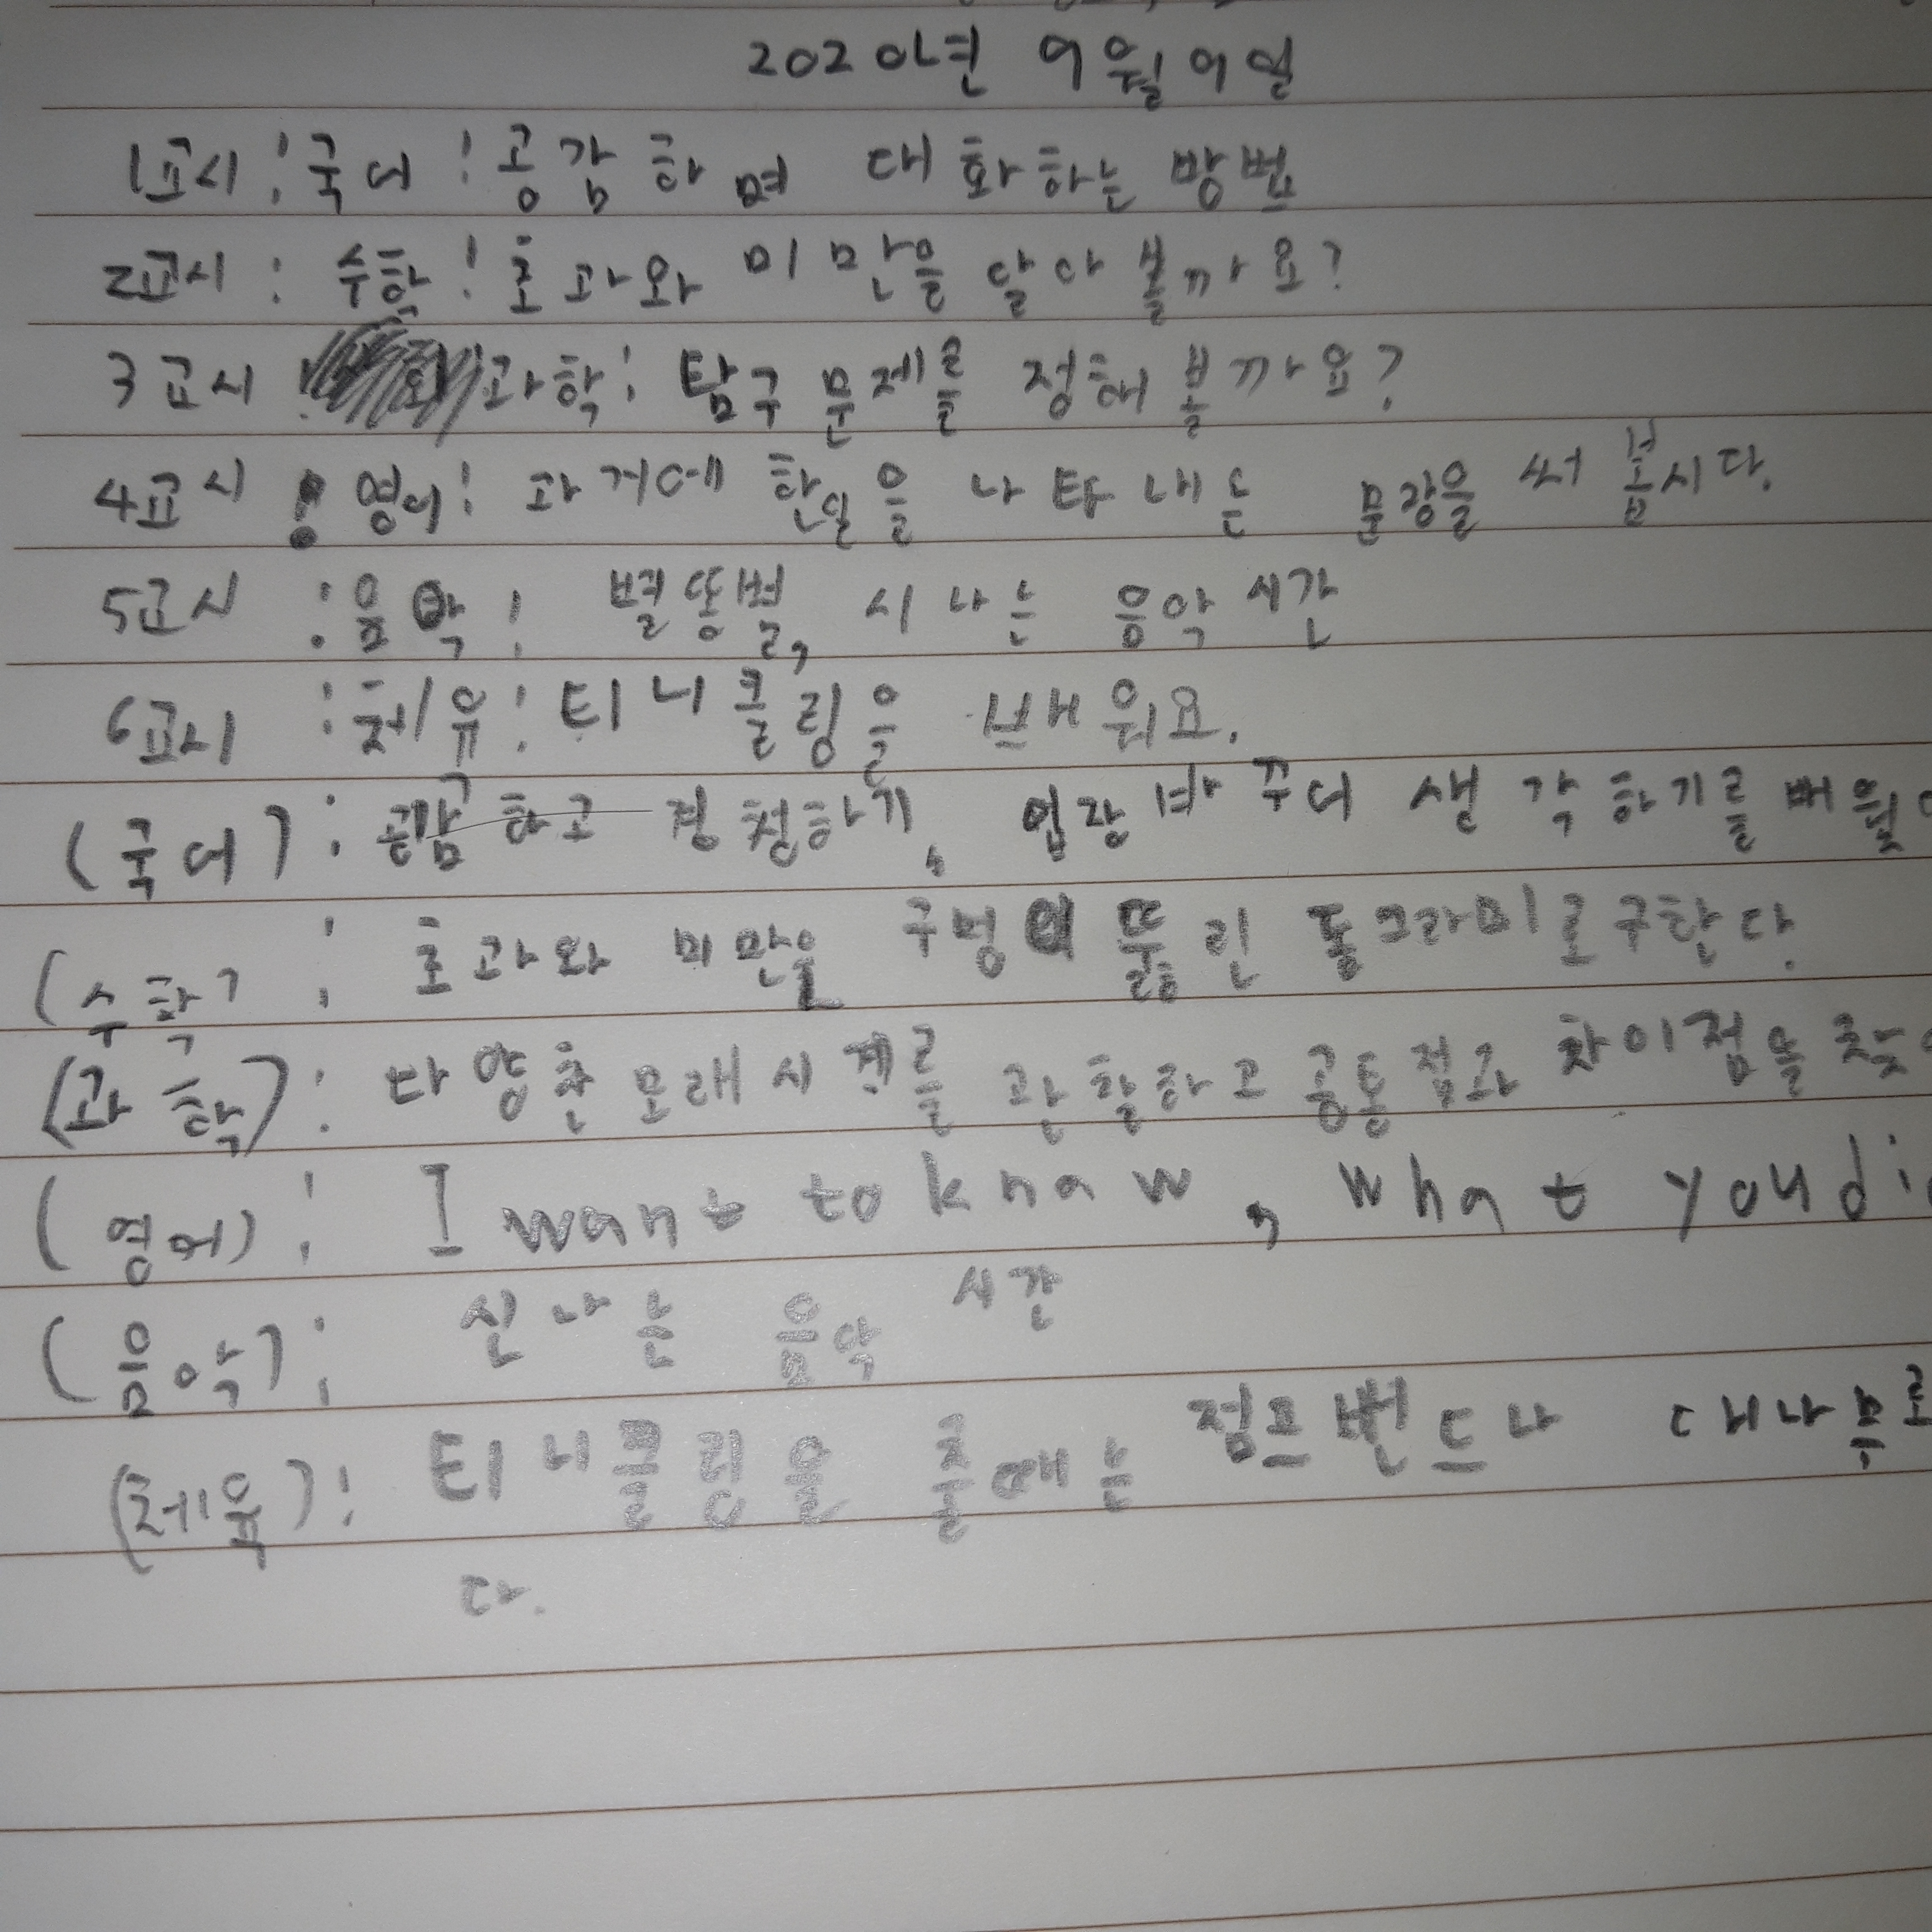 2020년 9월 9일
1교시 : 국어 : 공감하며 대화하는 방법
2교시 : 수학 : 초과와 미만을 알아 볼까요?
3교시 : 과학 : 탐구 문제를 정해 볼까요?
4교시 : 영어 : 과거에 한일을 나타내는 문장을 써 봅시다.
5교시 : 음악 : 별똥별, 시나는 음악 시간
6교시 : 체유 : 티니클링을 배워요.
(국어) : 공감하고 경청하기, 입장 바꾸어 생각하기를 배웠
(수학) : 초과와 미만을 구멍이 뚫린 동그라미로 구한다.
(과학) : 다양한 모래시계를 관찰하고 공통점과 차이점을 찾
(영어) : I want to know, what you di
(음악) : 신나는 음악 시간
(체육) : 티니클링을 출때는 점프밴드나 대나무로
다.